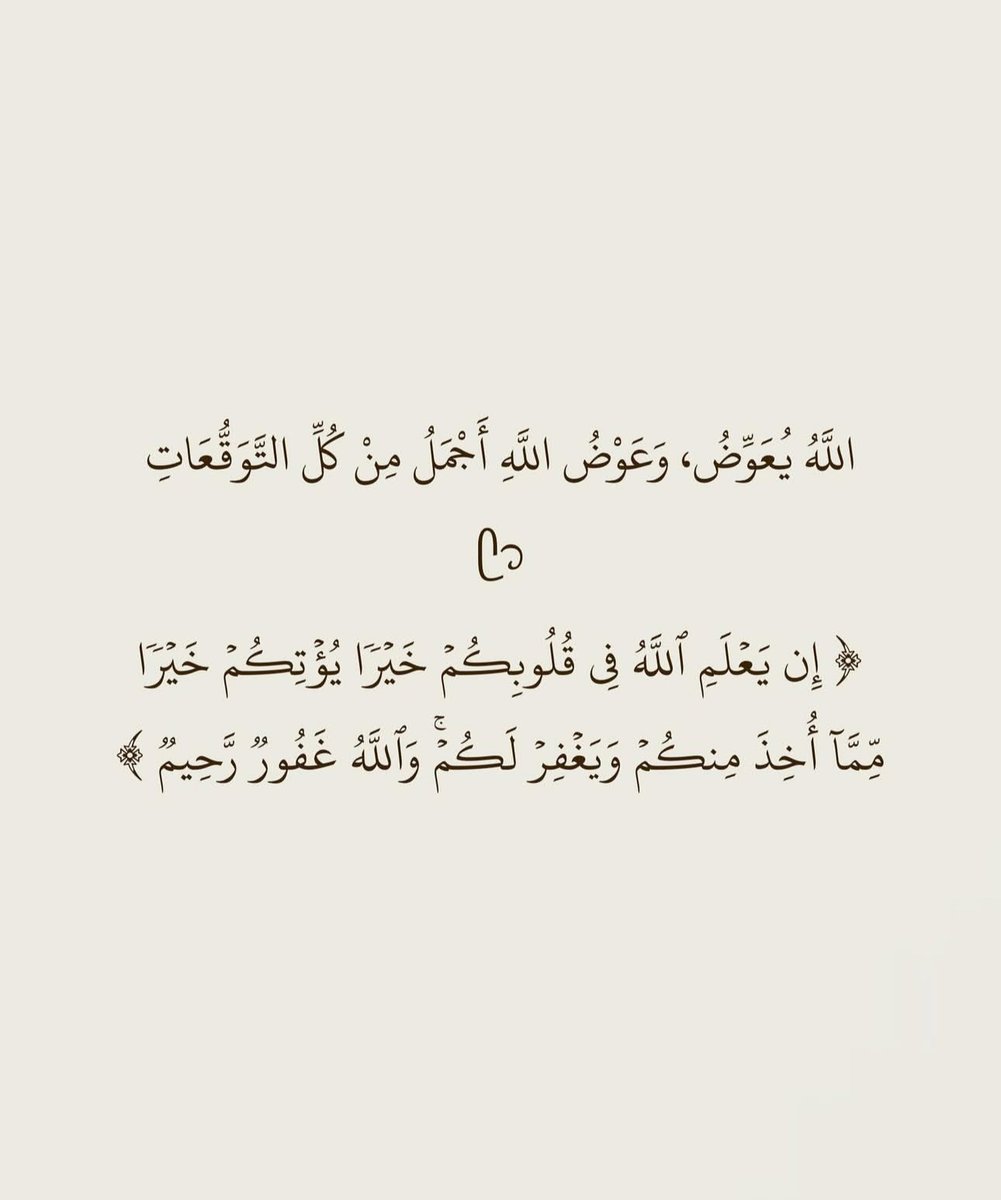 اللَّهُ يُعَوِّضُ، وَعَوْضُ اللَّهِ أَجْمَلُ مِنْ كُلِّ التَّوَقُّعَاتِ
﴿ إِن يَعْلَمِ ٱللَّهُ فِى قُلُوبِكُمْ خَيْرًا يُؤْتِكُمْ خَيْرًا
مِّمَّآ أُخِذَ مِنكُمْ وَيَغْفِرْ لَكُمْ ۚ وَٱللَّهُ غَفُورٌ رَّحِيمٌ ﴾